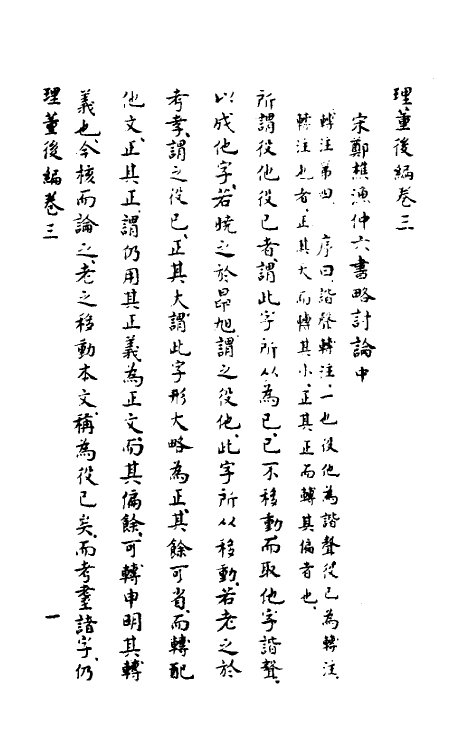 理董後編卷三
宋鄭樵漁仲六書略討論中
轉注第四 序曰、諧聲轉注、一也、役他為諧聲、役己為轉注、
轉注也者、正其大而轉其小、正其正而轉其偏者也、
所謂役他役己者、謂此字所以為己、己不移動而取他字諧聲、
以成他字、若曉之於昂旭、謂之役他、此字所以移動、若老之於
考耋、謂之役己、正其大、謂此字形大略為正、其餘可省、而轉配
他文、正其正、謂仍用其正義為正文、而其偏餘可轉申明其轉
義也、今核而論之、老之移動本文、稱為役己矣、而考耋諸字、仍
理董後編卷三 一